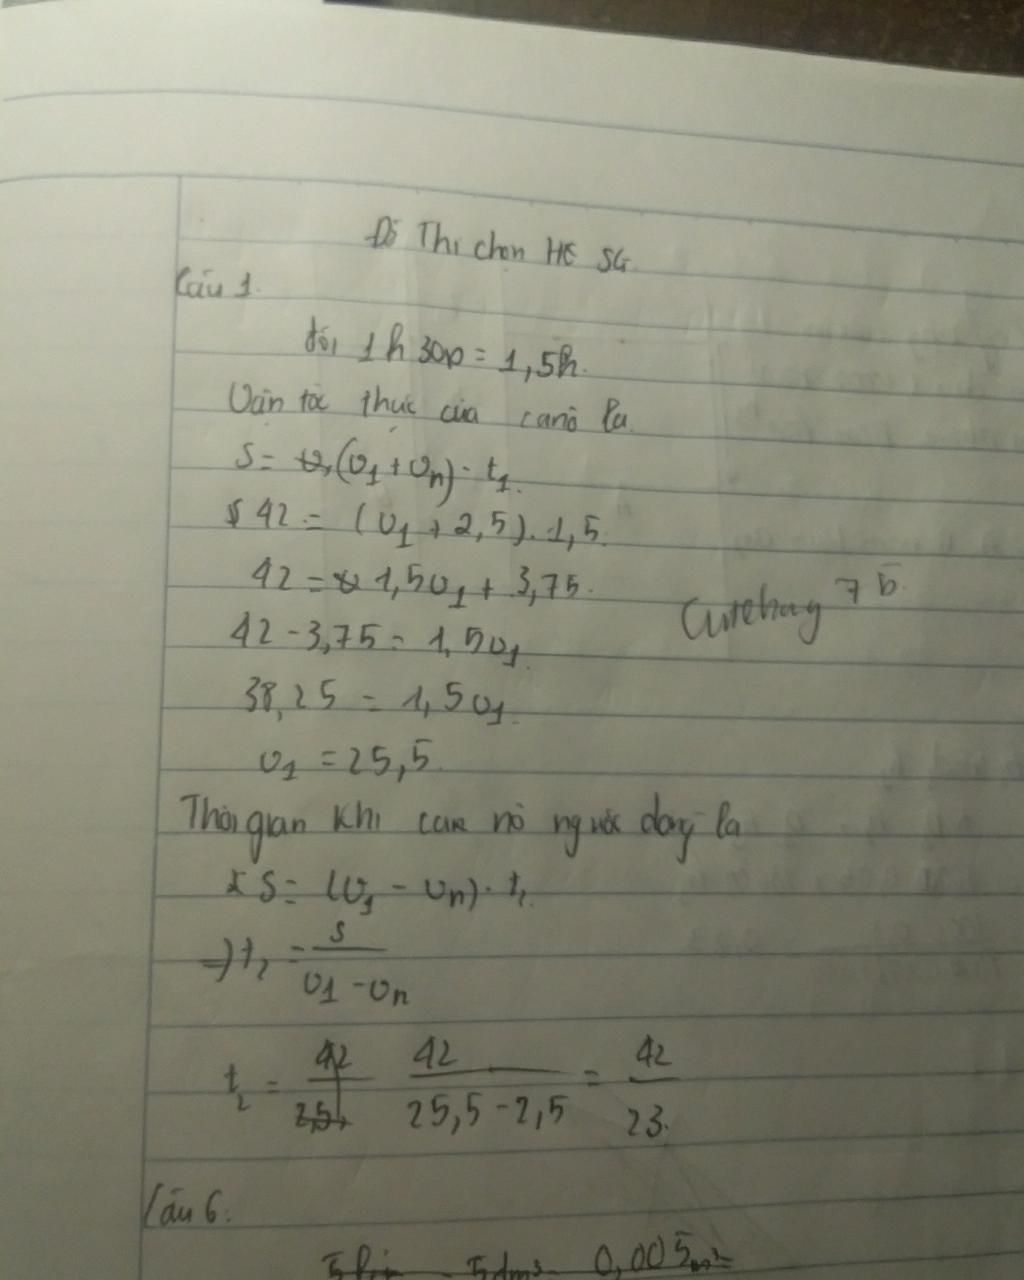 Đề Thi chọn HS SG
Câu 1.
đổi 1h30p = 1,5h.
Vận tốc thực của canô là
S = (v1 + vn) . t1.
42 = (v1 + 2,5) . 1,5.
42 = 1,5v1 + 3,75.
42 - 3,75 = 1,5v1
38,25 = 1,5v1
v1 = 25,5.
7b
Thời gian khi nô ngược dòng là
S = (v1 - vn) . t2
=> t2 = s / (v1 - vn)
t2 = 42 / (25,5 - 2,5) = 42 / 23.
Câu 6.
5dm³ = 0,005m³